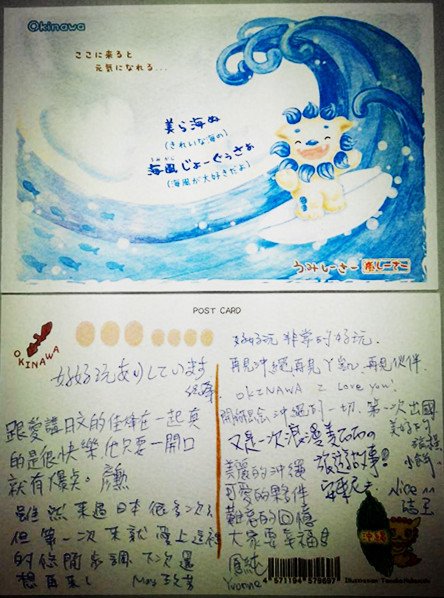 Okinawa
ここに来ると
元気になれる...
美ら海ぬ
(きれいな海の)
海風じょーぐぅさぁ
うみかじ
(海風が大好きだよ)
うみしーさー 楽しーさー
POST CARD
OKINAWA
好好玩ありしています
跟愛講日文的佳燁在一起真
的是很快樂 他只要一開口
就有爆點。
雖然來過日本很多次了
但第一次來就愛上這裡
的悠閒步調、下次還
想再來!
May
好好玩 非常的好玩.
再見沖繩再見丫凱、再見伙伴
OKINAWA I Love you!
開始想念沖繩的一切. 第一次出國
美好的
旅程
又是一次浪漫
旅遊故事!
美麗的沖繩
可愛的夥伴
難忘的回憶
大家要幸福自
Nice ^^
Yvonne
4 571194 579697
Illustration